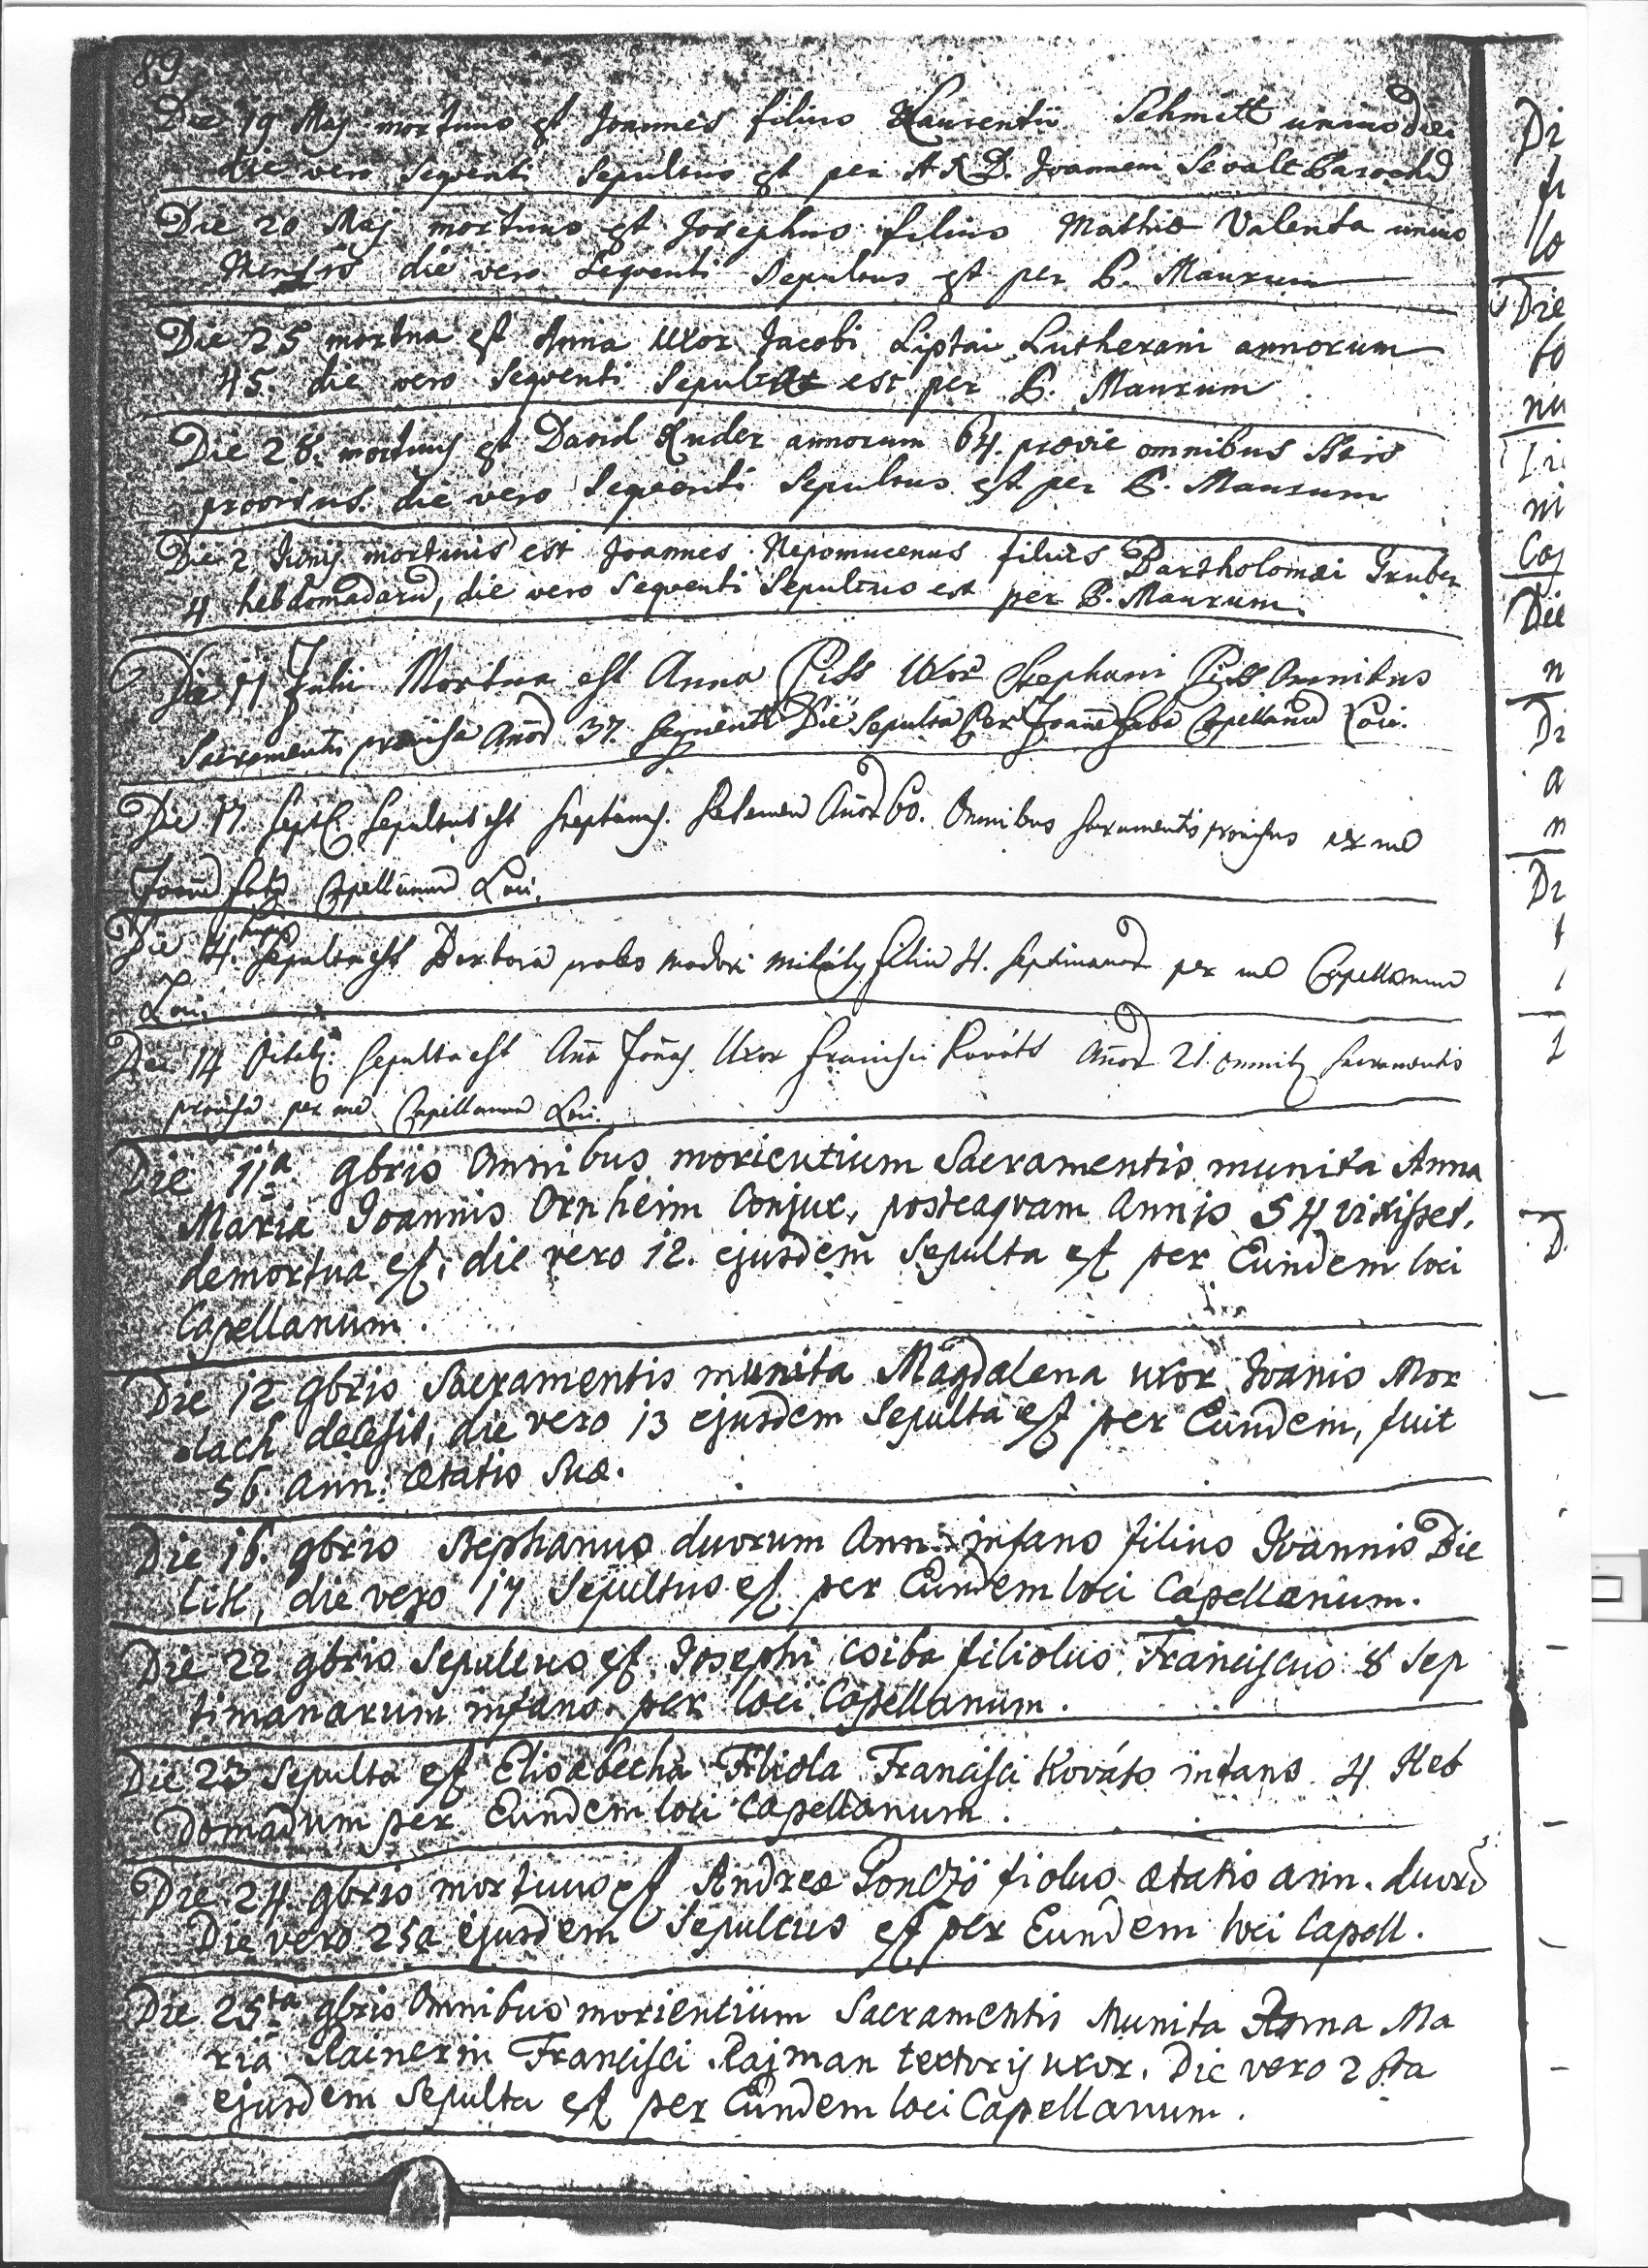 89
Die 19 Maj mortuus est Joannes filius Laurentii Schmitt unius diei
die vero seqventi sepultus est per A R D. Joannem Sevalt Parochū
Die 20 Maj mortuus est Josephus filius Mathiæ Valenta unius
Mensis die vero seqventi Sepultus est per P. Maurum
Die 25 mortua est Anna uxor Jacobi Liptai Lutherani annorum
45. die vero seqventi sepulta est per P. Maurum
Die 28. mortuus est David annorum 64. prævie omnibus
provisus. die vero Seqventi Sepultus est per P. Maurum
Die 2 Junij mortuus est Joannes Nepomucenus filius Bartholomæi Gruber
4 hebdomadarū, die vero seqventi Sepultus est per P. Maurum.
Die 11 Julii Mortua est Anna Piss Uxor Stephani Piss Omnibus
Sacramentis provisa Anorū 37. sequenti Die sepulta per Joanē Capellanū Loci.
Die 17. Septb. Sepultus est Stephanus Anorū 60. Omnibus sacramentis provisus per me
Joanē Capellanum Loci.
Die 4. Sepulta est Barbara proles Modori Mihály filia 4. septimanarū per me Capellanum
Loci.
Die 14 Octob: sepulta est Aña Uxor Francisci Kováts Añorū 21. omnibʒ sacramentis
provisa per me Capellanum Loci.
Die 11a 9bris Omnibus morientium Sacramentis munita Anna
Maria Joannis Ornheim Conjux, posteaqvam Annis 54 vixisset,
demortua est, die vero 12. ejusdem Sepulta est per Eundem loci
Capellanum.
Die 12 9bris Sacramentis munita Magdalena uxor Joanis Mor
lach decessit, die vero 13 ejusdem Sepulta est per Eundem, fuit
56. Ann: ætatis suæ.
Die 16. 9bris Stephanus duorum Ann: infans filius Joannis Die
lik, die vero 17 Sepultus est per Eundem loci Capellanum.
Die 22 9bris Sepultus est Josephi Csiba filiolus Franciscus 8 Sep
timanarum infans per loci Capellanum.
Die 23 Sepulta est Elisabetha Filiola Francisci Kováts infans 4 Heb
domadum per Eundem loci Capellanum.
Die 24 9bris mortuus est Andreæ Gonczö fiolus ætatis ann. duorū
Die vero 25a ejusdem Sepultus est per Eundem loci Capell.
Die 25ta 9bris Omnibus morientium Sacramentis Munita Anna Ma
ria Rainerin Francisci Rajman textoris uxor. Die vero 26ta
ejusdem Sepulta est per Eundem loci Capellanum.